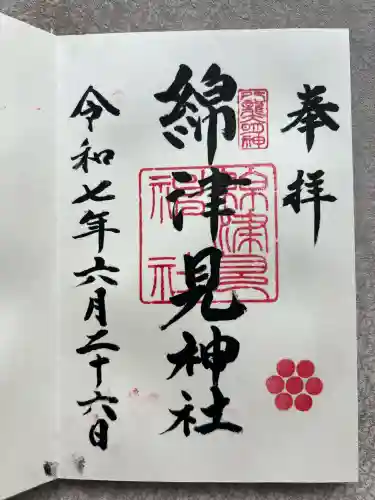 奉拝
綿津見神社
綿津見神社
令和七年六月二十六日